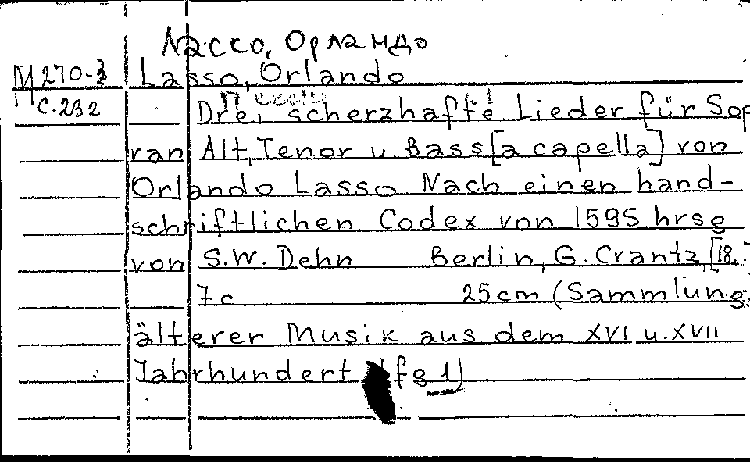 Лассо, Орландо
М270-3 Lasso, Orlando
с.232 Drei scherzhafte Lieder für Sop
ran Alt, Tenor u. Bass [a capella] von
Orlando Lasso Nach einen hand-
schriftlichen Codex von 1595 hrsg
von S.W. Dehn Berlin, G. Crantz, [18.
7 c 25 cm (Sammlung
älterer Musik aus dem XVI u. XVII
Jahrhundert lfg 1)